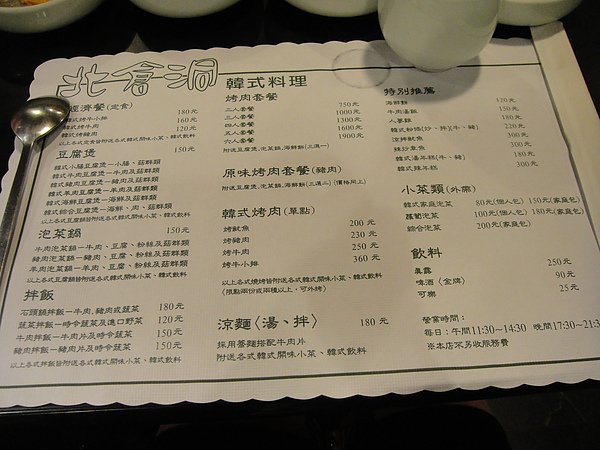 北倉洞
經濟餐(定食)
韓式烤牛小排 180元
韓式烤牛肉 160元
韓式烤豬肉 120元
以上各式定食皆附送各式韓式開味小菜、韓式飲料
豆腐煲 150元
韓式小腸豆腐煲—小腸、菇群類
韓式牛肉豆腐煲—牛肉及菇群類
韓式豬肉豆腐煲—豬肉及菇群類
韓式羊肉豆腐煲—羊肉及菇群類
韓式海鮮豆腐煲—海鮮及菇群類
韓式綜合豆腐煲—海鮮、肉、菇群類
以上各式豆腐鍋皆附送各式韓式開味小菜、韓式飲料
泡菜鍋 150元
牛肉泡菜鍋—牛肉、豆腐、粉絲及菇群類
豬肉泡菜鍋—豬肉、豆腐、粉絲及菇群類
羊肉泡菜鍋—羊肉、豆腐、粉絲及菇群類
以上各式豆腐鍋皆附送各式韓式開味小菜、韓式飲料
拌飯
石頭鍋拌飯—牛肉,豬肉或蔬菜 180元
蔬菜拌飯—時令蔬菜及進口野菜 120元
牛肉拌飯—牛肉片及時令蔬菜 150元
豬肉拌飯—豬肉片及時令蔬菜 150元
以上各式拌飯皆附送各式韓式開味小菜、韓式飲料
韓式料理
烤肉套餐
二人套餐 750元
三人套餐 1000元
四人套餐 1300元
五人套餐 1600元
六人套餐 1900元
附送豆腐煲,泡菜鍋,海鮮餅(三選一)
原味烤肉套餐(豬肉)
附送豆腐煲,泡菜鍋,海鮮餅(三選二)(價格同上)
韓式烤肉(單點)
烤魷魚 200元
烤豬肉 230元
烤牛肉 250元
烤牛小排 360元
以上各式燒烤皆附送各式韓式開味小菜、韓式飲料
(限點兩份或兩種以上,可外烤)
涼麵〈湯、拌〉 180元
採用蕎麵搭配牛肉片
附送各式韓式開味小菜、韓式飲料
特別推薦
海鮮餅 120元
牛肉湯飯 150元
人蔘雞 180元
韓式粉條(炒、拌)(牛、豬) 220元
涼拌魷魚 300元
辣炒章魚 300元
韓式湯年糕(牛、豬) 180元
韓式辣年糕 300元
小菜類(外席)
韓式家庭泡菜 80元(個人包) 150元(家庭包)
蘿蔔泡菜 100元(個人包) 180元(家庭包)
綜合泡菜 200元(家庭包)
飲料
真露 250元
啤酒〈金牌〉 90元
可樂 25元
營業時間:
每日:午間11:30~14:30 晚間17:30~21:3
※本店不另收服務費